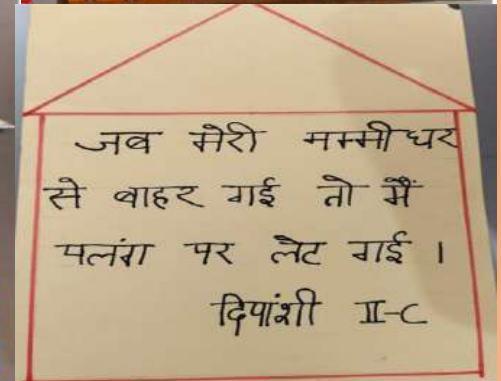 जब मेरी मम्मी घर
से बाहर गई तो मैं
पलंग पर लेट गई ।
दिपांशी II-C